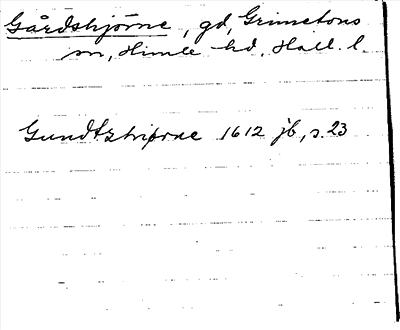 Gårdshjörne, gd, Grimetons
sn, Himle hd, Hall. l.
Gundtzhiørne 1612 jb, s. 23